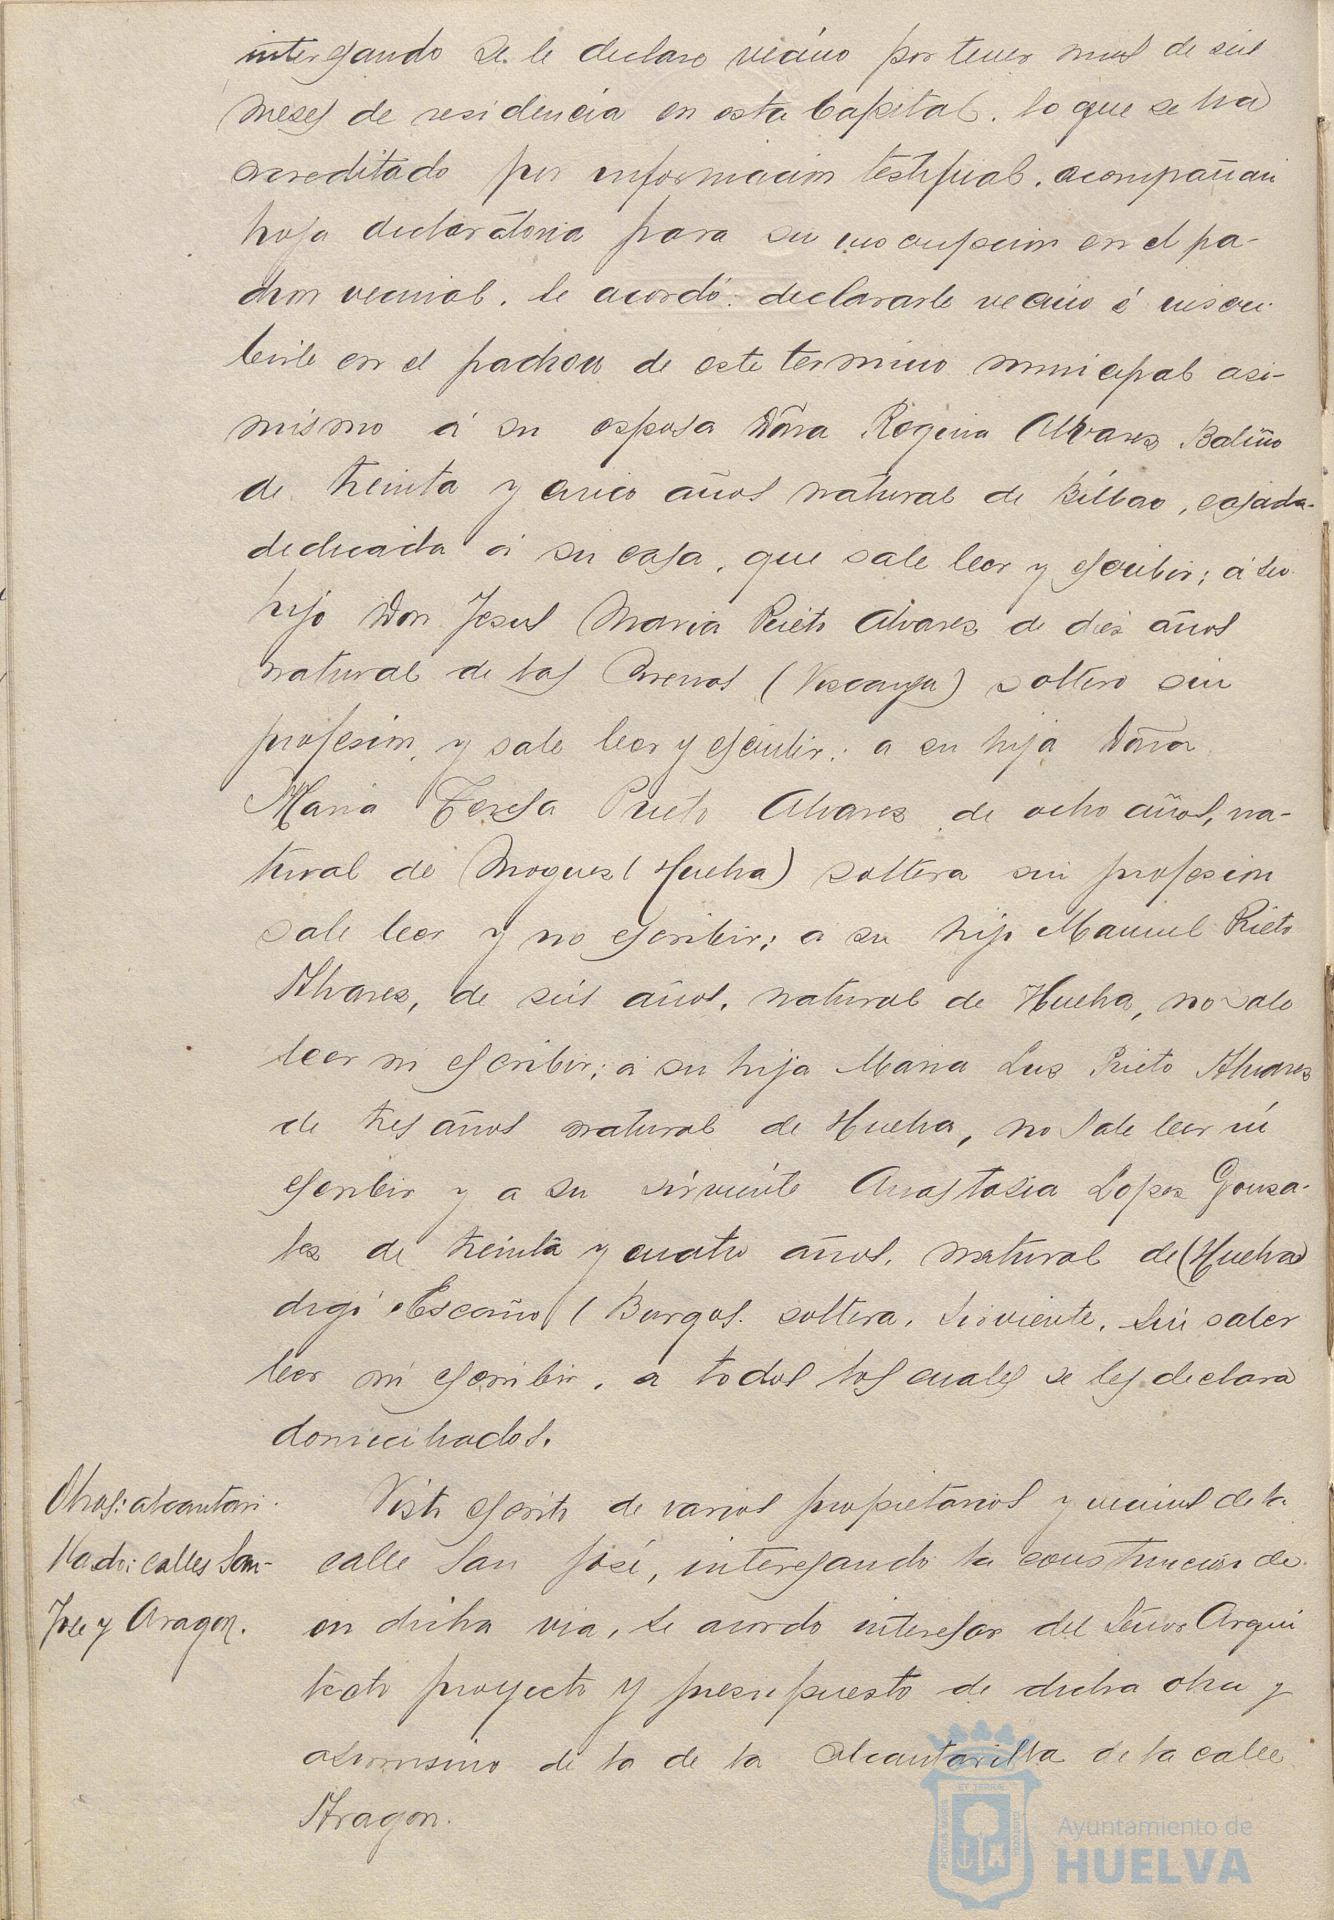 interesando se le declare vecino por tener mas de seis
meses de residencia en esta Capital, lo que se ha
acreditado por informacion testifical, acompañan
hoja declaratoria para su inscripcion en el pa-
dron vecinal. Se acordó: declararle vecino é inscri-
birle en el padron de este termino municipal asi-
mismo á su esposa Doña Regina Alvarez Baliño
de treinta y cinco años natural de Bilbao, casada
dedicada á su casa, que sabe leer y escribir; á su
hijo Don Jesus Maria Prieto Alvarez de diez años
natural de las Arenas (Viscaya) soltero sin
profesion, y sabe leer y escribir; a su hija Doña
Maria Teresa Prieto Alvarez de ocho años, na-
tural de Moguer (Huelva) soltera sin profesion
sabe leer y no escribir; a su hijo Manuel Prieto
Alvarez, de seis años, natural de Huelva, no sabe
leer ni escribir; a su hija Maria Luz Prieto Alvarez
de tres años natural de Huelva, no sabe leer ni
escribir y a su sirviente Anastasia Lopez Gonza-
les de treinta y cuatro años, natural de (Huelva)
digo Escaño (Burgos. soltera, sirviente, sin saber
leer ni escribir, a todos los cuales se les declara
domiciliados.
Obras: alcantari-
llado: calles San
Jose y Aragon.
Visto escrito de varios propietarios y vecinos de la
calle San José, interesando la construccion de
en dicha via, se acordo interesar del Señor Arqui
tecto proyecto y presupuesto de dicha obra y
asimismo de la de la alcantarilla de la calle
Aragon.
PORTUS MARIS
ET TERRAE
CUSTODIA
Ayuntamiento de
HUELVA